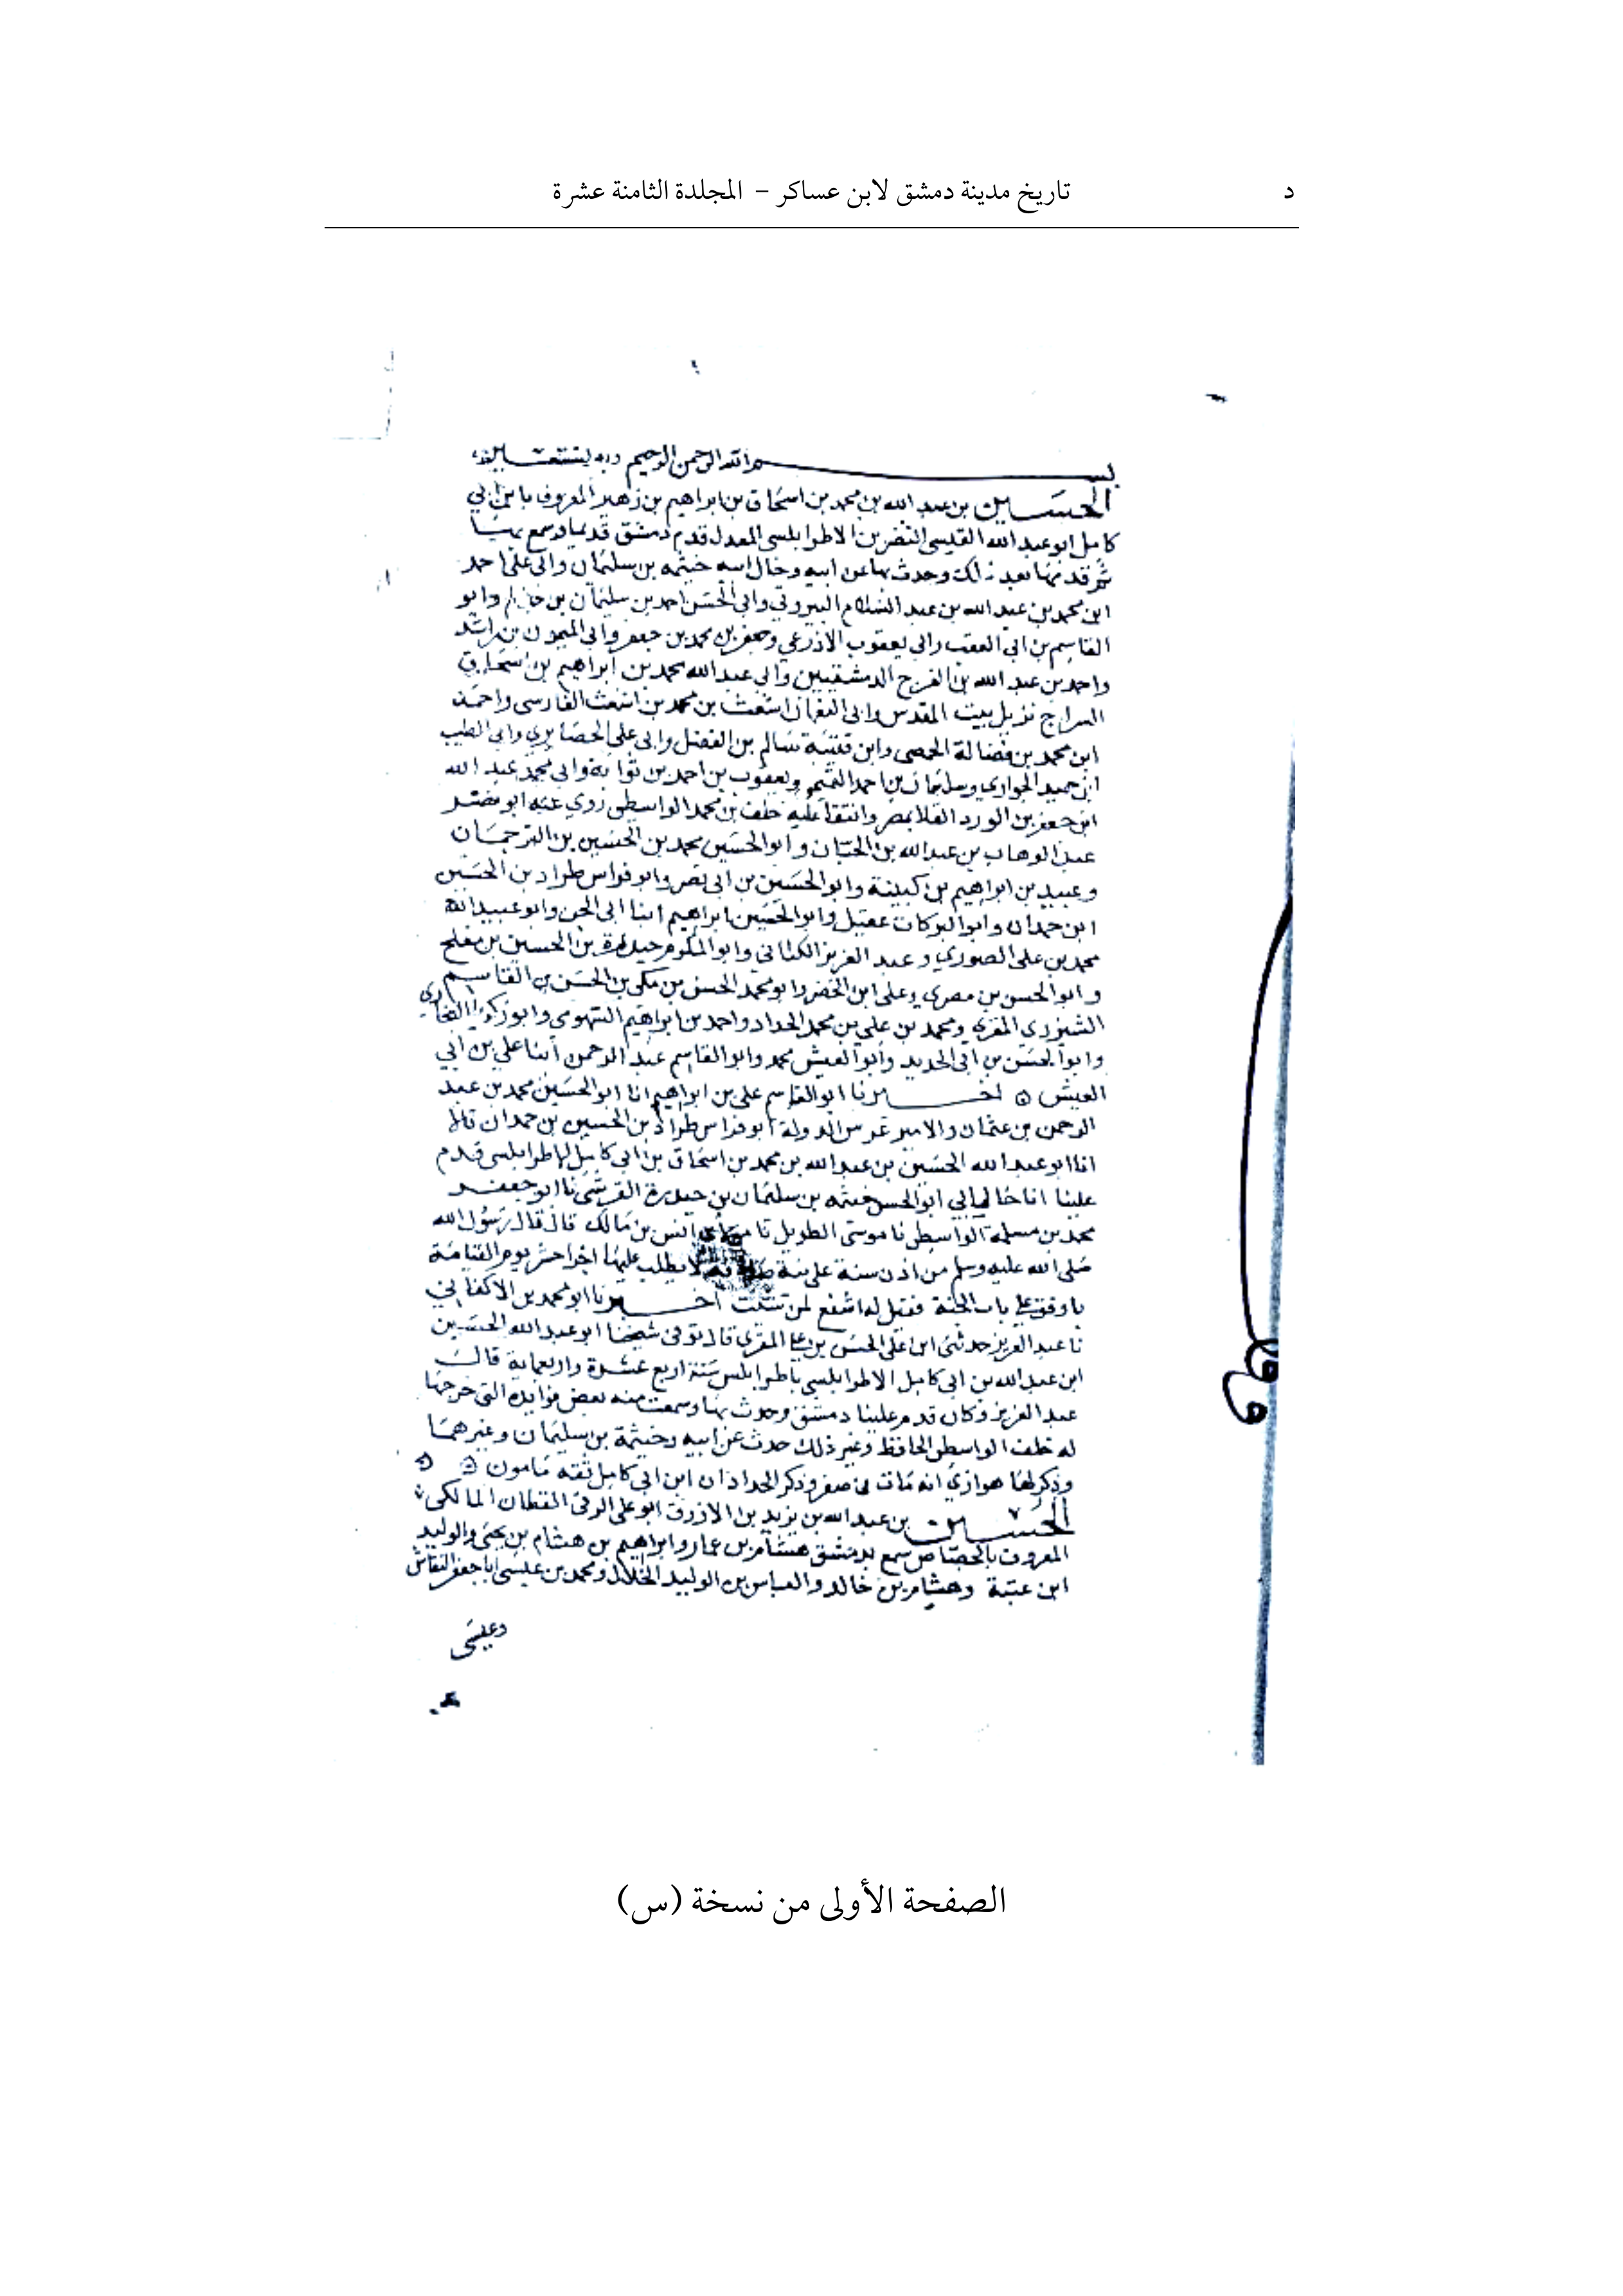 د
تاريخ مدينة دمشق لابن عساكر – المجلدة الثامنة عشرة
بسم الله الرحمن الرحيم وبه نستعين
الحسين بن عبد الله بن محمد بن اسحاق بن ابراهيم بن زهير المعروف بابن ابي
كامل ابو عبد الله القيسي النضر بن الاطرابلسي المعدل قدم دمشق قديما وسمع بها
ثم قدمها بعد ذلك وحدث بها عن ابيه وخال ابيه خيثمه بن سليمان وابي علي احمد
ابن محمد بن عبد الله بن عبد السلام البيروتي وابي الحسن احمد بن سليمان بن وابو
القاسم بن ابي العقب وابي يعقوب الاذرعي وجعفر بن محمد بن جعفر وابي الميمون بن راشد
واحمد بن عبد الله بن الفرج الدمشقيين وابي عبد الله محمد بن ابراهيم بن اسحاق
السراج نزيل بيت المقدس وابي اشعث بن محمد بن اشعث الفارسي واحمد
ابن محمد بن فضالة الحمصي وابن قتيبة سالم بن الفضل وابي علي الحصايري وابي الطيب
ابن حميد وسليمان بن احمد ويعقوب بن احمد بن ثوابة وابي محمد عبد الله
ابن جعفر بن الورد بمصر وانتقا عليه خلف بن محمد الواسطي روى عنه ابو نصر
عبد الوهاب بن عبد الله بن الحبان وابو الحسين محمد بن الحسين بن الترجمان
وعبيد بن ابراهيم بن كبيبة وابو الحسين بن ابي نصر وابو فراس طراد بن الحسين
ابن حمدان وابو البركات عقيل وابو الحسين ابراهيم ابنا ابي الجن وابو عبد الله
محمد بن علي الصوري وعبد العزيز الكتاني وابو المكرم حيدرة بن الحسين بن مفلح
وابو الحسن بن مصري وعلي ابن الخضر وابو محمد الحسن بن مكي بن الحسن بن القاسم
الشيزري المقري ومحمد بن علي بن محمد الحداد واحمد بن ابراهيم وابو زكريا البخاري
وابو الحسن بن ابي الحديد وابو العيش محمد وابو القاسم عبد الرحمن ابنا علي بن ابي
العيش اخبرنا ابو القاسم علي بن ابراهيم انا ابو الحسين محمد بن عبد
الرحمن بن عثمان والامير غرس الدولة ابو فراس طراد بن الحسين بن حمدان قالا
انا ابو عبد الله الحسين بن عبد الله بن محمد بن اسحاق بن ابي كامل الاطرابلسي قدم
علينا انا خال ابي ابو الحسن خيثمه بن سليمان بن حيدرة القرشي نا ابو جعفر
محمد بن مسلمة الواسطي نا موسى الطويل نا انس بن مالك قال قال رسول الله
صلى الله عليه وسلم من اذن سنة على نية لا يطلب عليها اجرا حشر يوم القيامة
باب الجنة فقيل له اشفع لمن شئت اخبرنا ابو محمد بن الاكفاني
نا عبد العزيز حدثني الحسن بن علي المقري قال توفي شيخنا ابو عبد الله الحسين
ابن عبد الله بن ابي كامل الاطرابلسي باطرابلس سنة اربع عشرة واربعماية قال
عبد العزيز وكان قدم علينا دمشق وحدث بها وسمعت منه بعض فوايده التي خرجها
له خلف الواسطي الحافظ وغير ذلك حدث عن ابيه وخيثمة بن سليمان وغيرهما
وذكر انه مات في صفر وذكر الحداد ان ابن ابي كامل ثقه مامون
الحسين بن عبد الله بن يزيد بن الازرق ابو علي الرقي القطان المالكي
المعروف بالجصاص سمع بدمشق هشام بن عمار وابراهيم بن هشام بن يحيى والوليد
ابن عتبة وهشام بن خالد والعباس بن الوليد الخلال ومحمد بن عيسى ابا جعفر النقاش
وعيسى
الصفحة الأولى من نسخة (س)